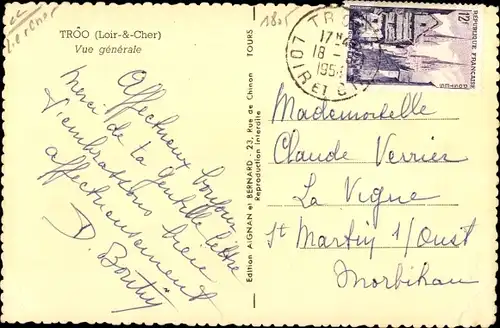 TRÔO (Loir-&-Cher)
Vue générale
Affectueux bonjour
Merci de ta gentille lettre
t'embrassons bien
affectueusement
D. Boutry
Edition AIGNAN et BERNARD - 23, Rue de Chinon TOURS
Reproduction interdite
TRÔO
17 H
18 -
195
LOIR ET CHER
12F
REPUBLIQUE FRANÇAISE
POSTES
Mademoiselle
Claude Verrier
La Vigne
St Martin s/Oust
Morbihan